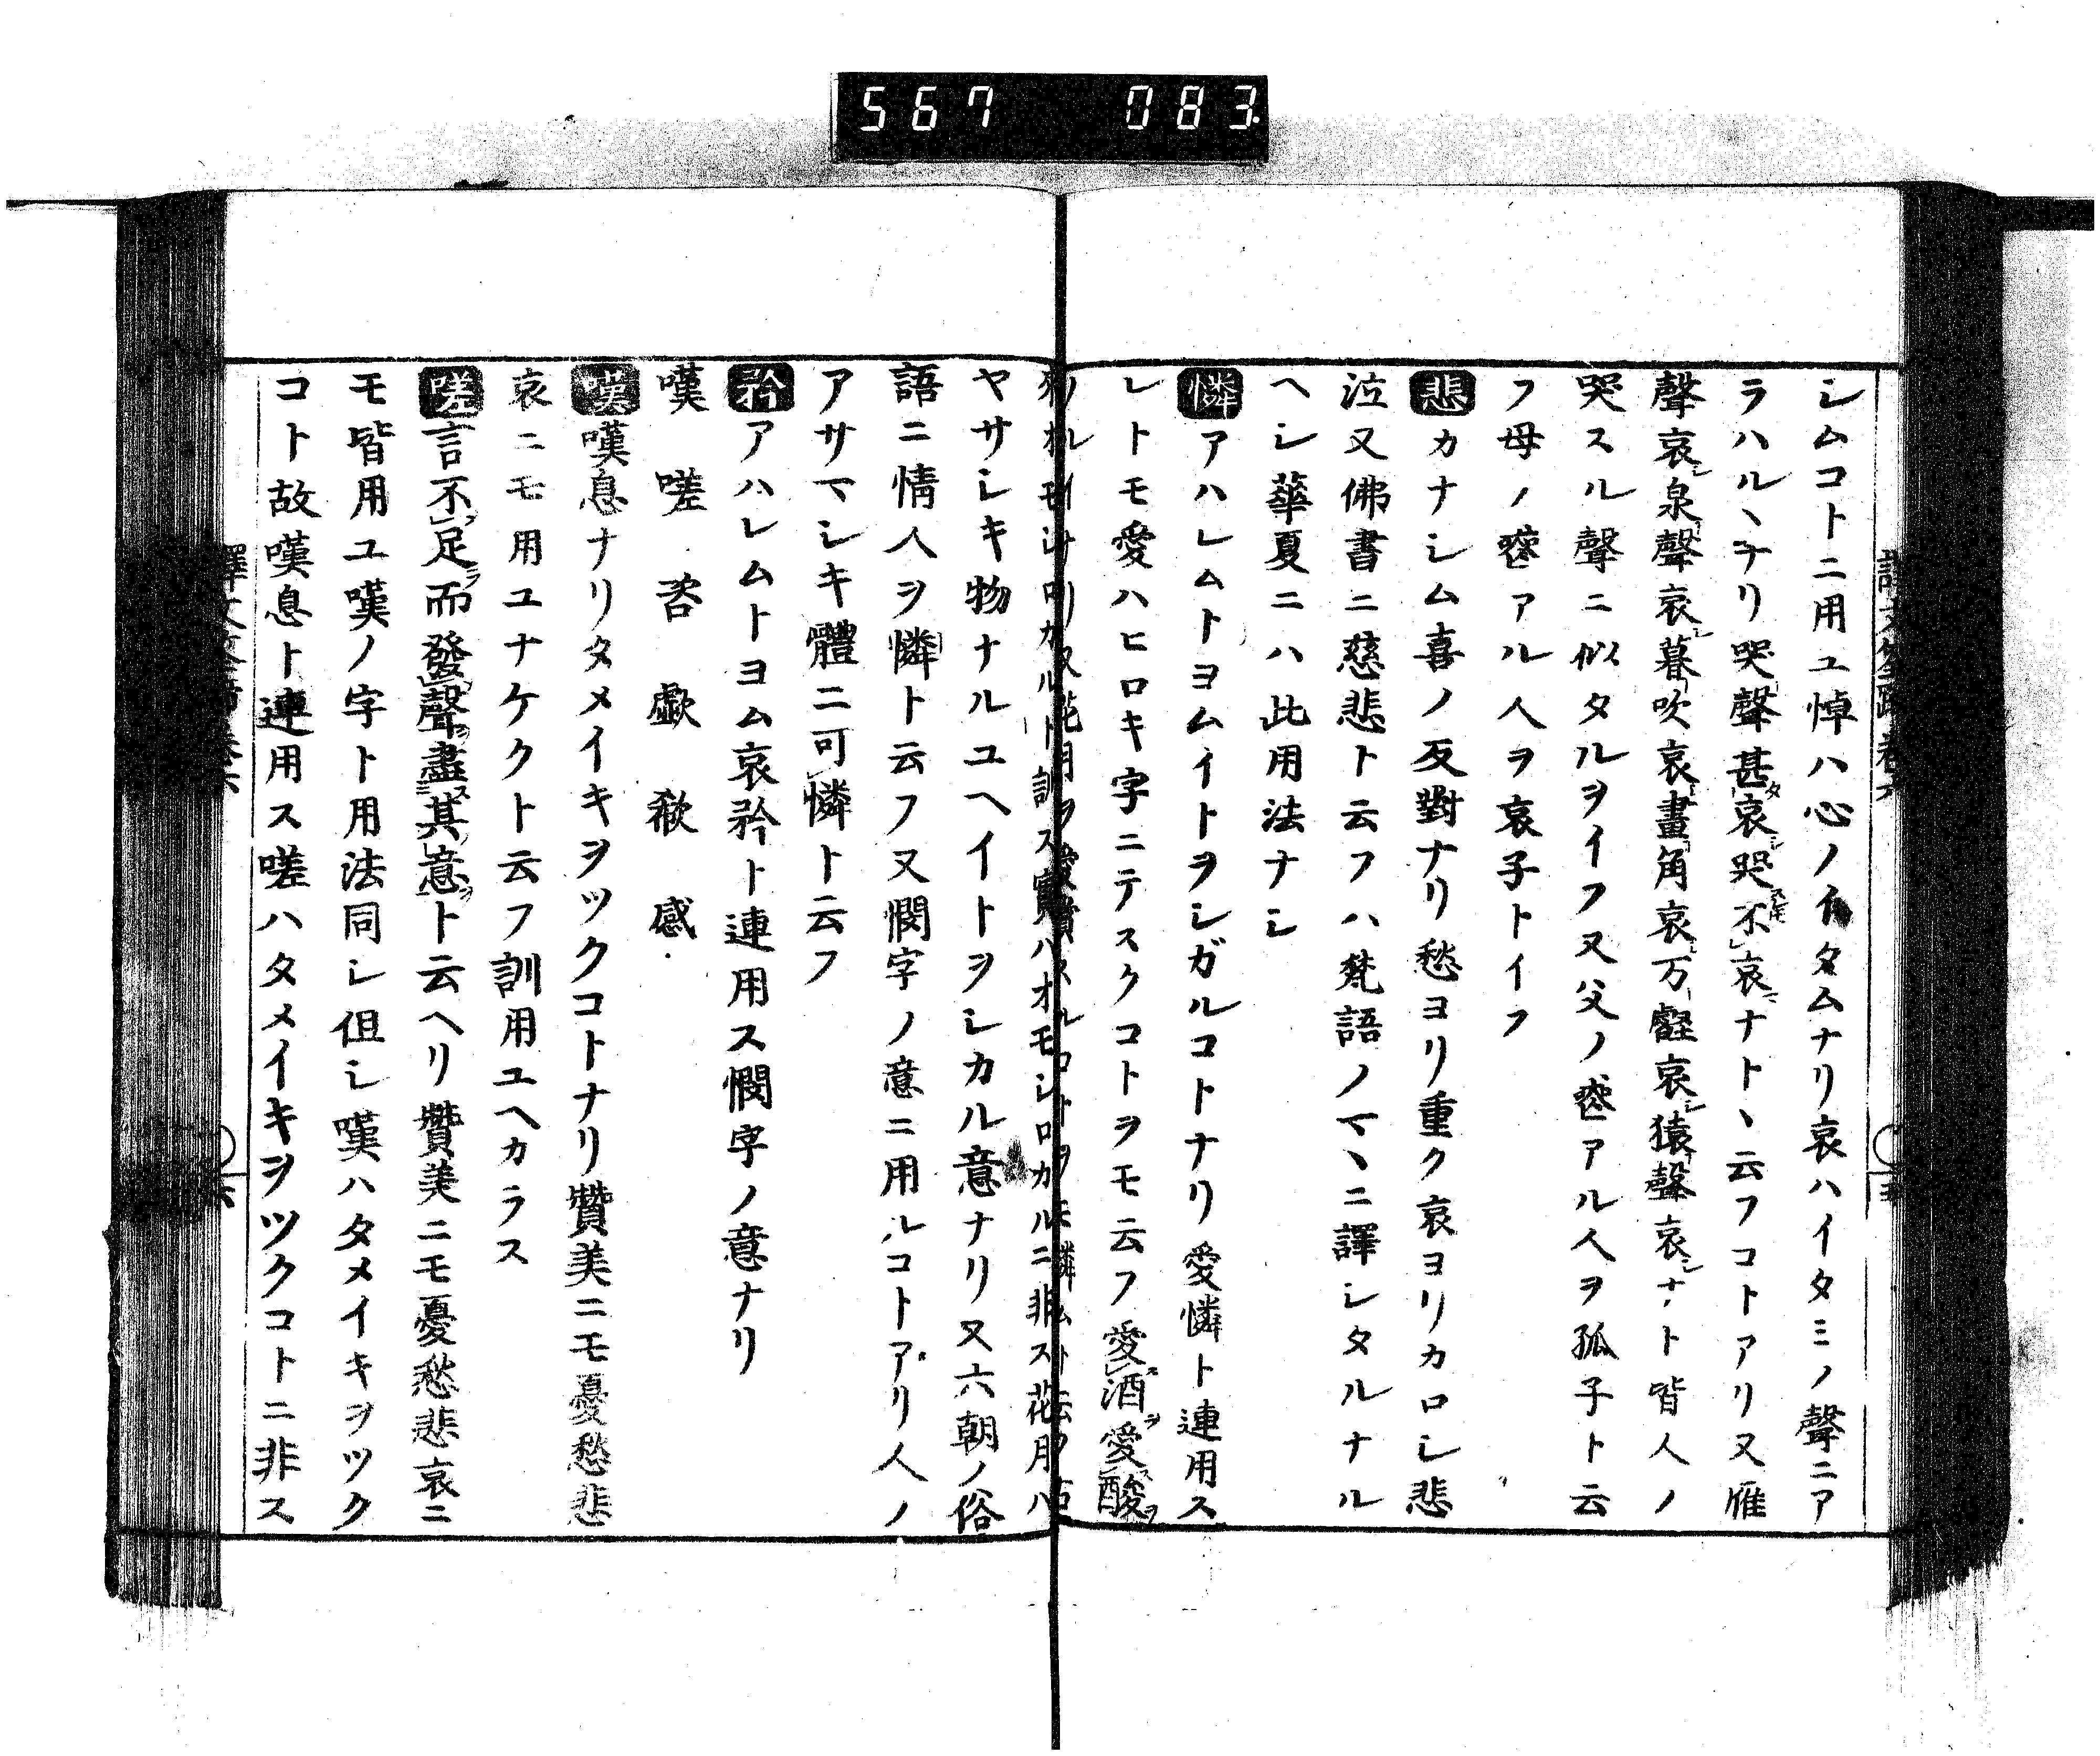 567 083
シムコトニ用ユ悼ハ心ノイタムナリ哀ハイタミノ聲ニア
ラハルヽナリ哭聲甚哀哭不哀ナトヽ云フコトアリ又雁
聲哀泉聲哀暮吹哀畫角哀万壑哀猿聲哀ナト皆人ノ
哭スル聲ニ似タルヲイフ又父ノアル人ヲ孤子ト云
フ母ノアル人ヲ哀子トイフ
悲カナシム喜ノ反對ナリ愁ヨリ重ク哀ヨリカロシ悲
泣又佛書ニ慈悲ト云フハ梵語ノマヽニ譯シタルナル
ヘシ華夏ニハ此用法ナシ
憐アハレムトヨムイトヲシガルコトナリ愛憐ト連用ス
レトモ愛ハヒロキ字ニテスクコトヲモ云フ愛酒愛酸
ノルイナリ又花月ヲ愛賞スルコトヲモ憐ムト云フ
オモシロカルト訓ス實ハオモシロカルニ非ス花月ハ
ヤサシキ物ナルユヘイトヲシカル意ナリ又六朝ノ俗
語ニ情人ヲ憐ト云フ又憫字ノ意ニ用ルコトアリ人ノ
アサマシキ體ニ可憐ト云フ
矜アハレムトヨム哀矜ト連用ス憫字ノ意ナリ
嘆 嗟 咨 歔 欷 感
嘆嘆息ナリタメイキヲツクコトナリ贊美ニモ憂愁悲
哀ニモ用ユナケクト云フ訓用ユヘカラス
嗟言不足而發聲盡其意ト云ヘリ贊美ニモ憂愁悲哀ニ
モ皆用ユ嘆ノ字ト用法同シ但シ嘆ハタメイキヲツク
コト故嘆息ト連用ス嗟ハタメイキヲツクコトニ非ス